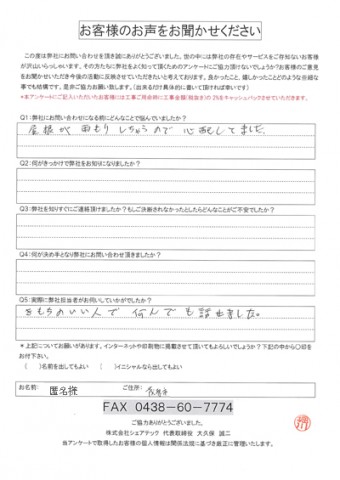 お客様のお声をお聞かせください
この度は弊社にお問い合わせを頂き誠にありがとうございました。世の中には弊社の存在やサービスをご存知ないお客様
が沢山いらっしゃいます。その方たちに弊社をよく知って頂くためのアンケートにご協力頂けないでしょうか?お客様のご意見
をお聞かせいただき今後の活動に反映させていただきたいと考えております。良かったこと、嬉しかったことどのような些細な
事でも結構です。是非ご協力お願い致します。(出来るだけ具体的に書いて頂ければ幸いです)
*本アンケートにご記入いただいたお客様には工事ご用命時に工事金額(税抜き)の2%をキャッシュバックさせていただきます。
Q1:弊社にお問い合わせになる前にどんなことで悩んでいましたか?
屋根が雨もりしちゃうので心配してました。
Q2:何がきっかけで弊社をお知りになりましたか?
Q3:弊社を知りすぐにご連絡頂けましたか?もしご決断されなかったとしたらどんなことがご不安でしたか?
Q4:何が決め手となり弊社にお問い合わせ頂きましたか?
Q5:実際に弊社担当者がお伺いしていかがでしたか?
きもちのいい人で 何んでも話せました。
* 上記についてお願いがあります。インターネットや印刷物に掲載させて頂いてもよろしいでしょうか?下記の中から〇印を
お付下さい。
( )名前を出してもよい ( )イニシャルなら出してもよい
お名前: 匿名様 ご住所:
FAX 0438-60-7774
ご協力ありがとうございました。
株式会社シェアテック 代表取締役 大久保 誠二
当アンケートで取得したお客様の個人情報は関係法規に基づき厳正に管理いたします。